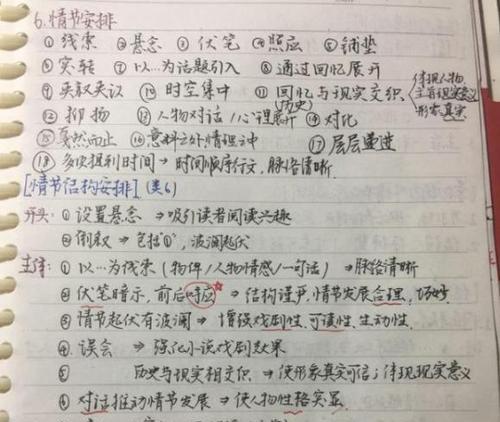 6.情节安排
①线索 ②悬念 ③伏笔 ④照应 ⑤铺垫
⑥突转 ⑦以…为话题引入 ⑧通过回忆展开
⑨ ⑩时空集中 ⑪回忆与现实交织 {体现人物
(历史) 主旨现实意义
形象真实
⑫抑扬 ⑬人物对话/心理展开 ⑭对比
⑮戛然而止 ⑯意料之外情理之中 ⑰层层递进
⑱多次提到时间→时间顺序行文,脉络清晰.
[情节结构安排](类6)
开头:①设置悬念⇒吸引读者阅读兴趣
②倒叙⇒包括"①",波澜起伏
主体:①以…为线索(物件/人物情感/一句话)⇒脉络清晰
②伏笔暗示,前后呼应☆⇒结构严谨,情节发展合理,巧妙
③情节起伏有波澜⇒增强戏剧性,可读性,生动性.
④误会⇒强化小说戏剧效果
⑤历史与现实相交织⇒使形象真实可信;体现现实意义
⑥对话推动情节发展⇒使人物性格突显.